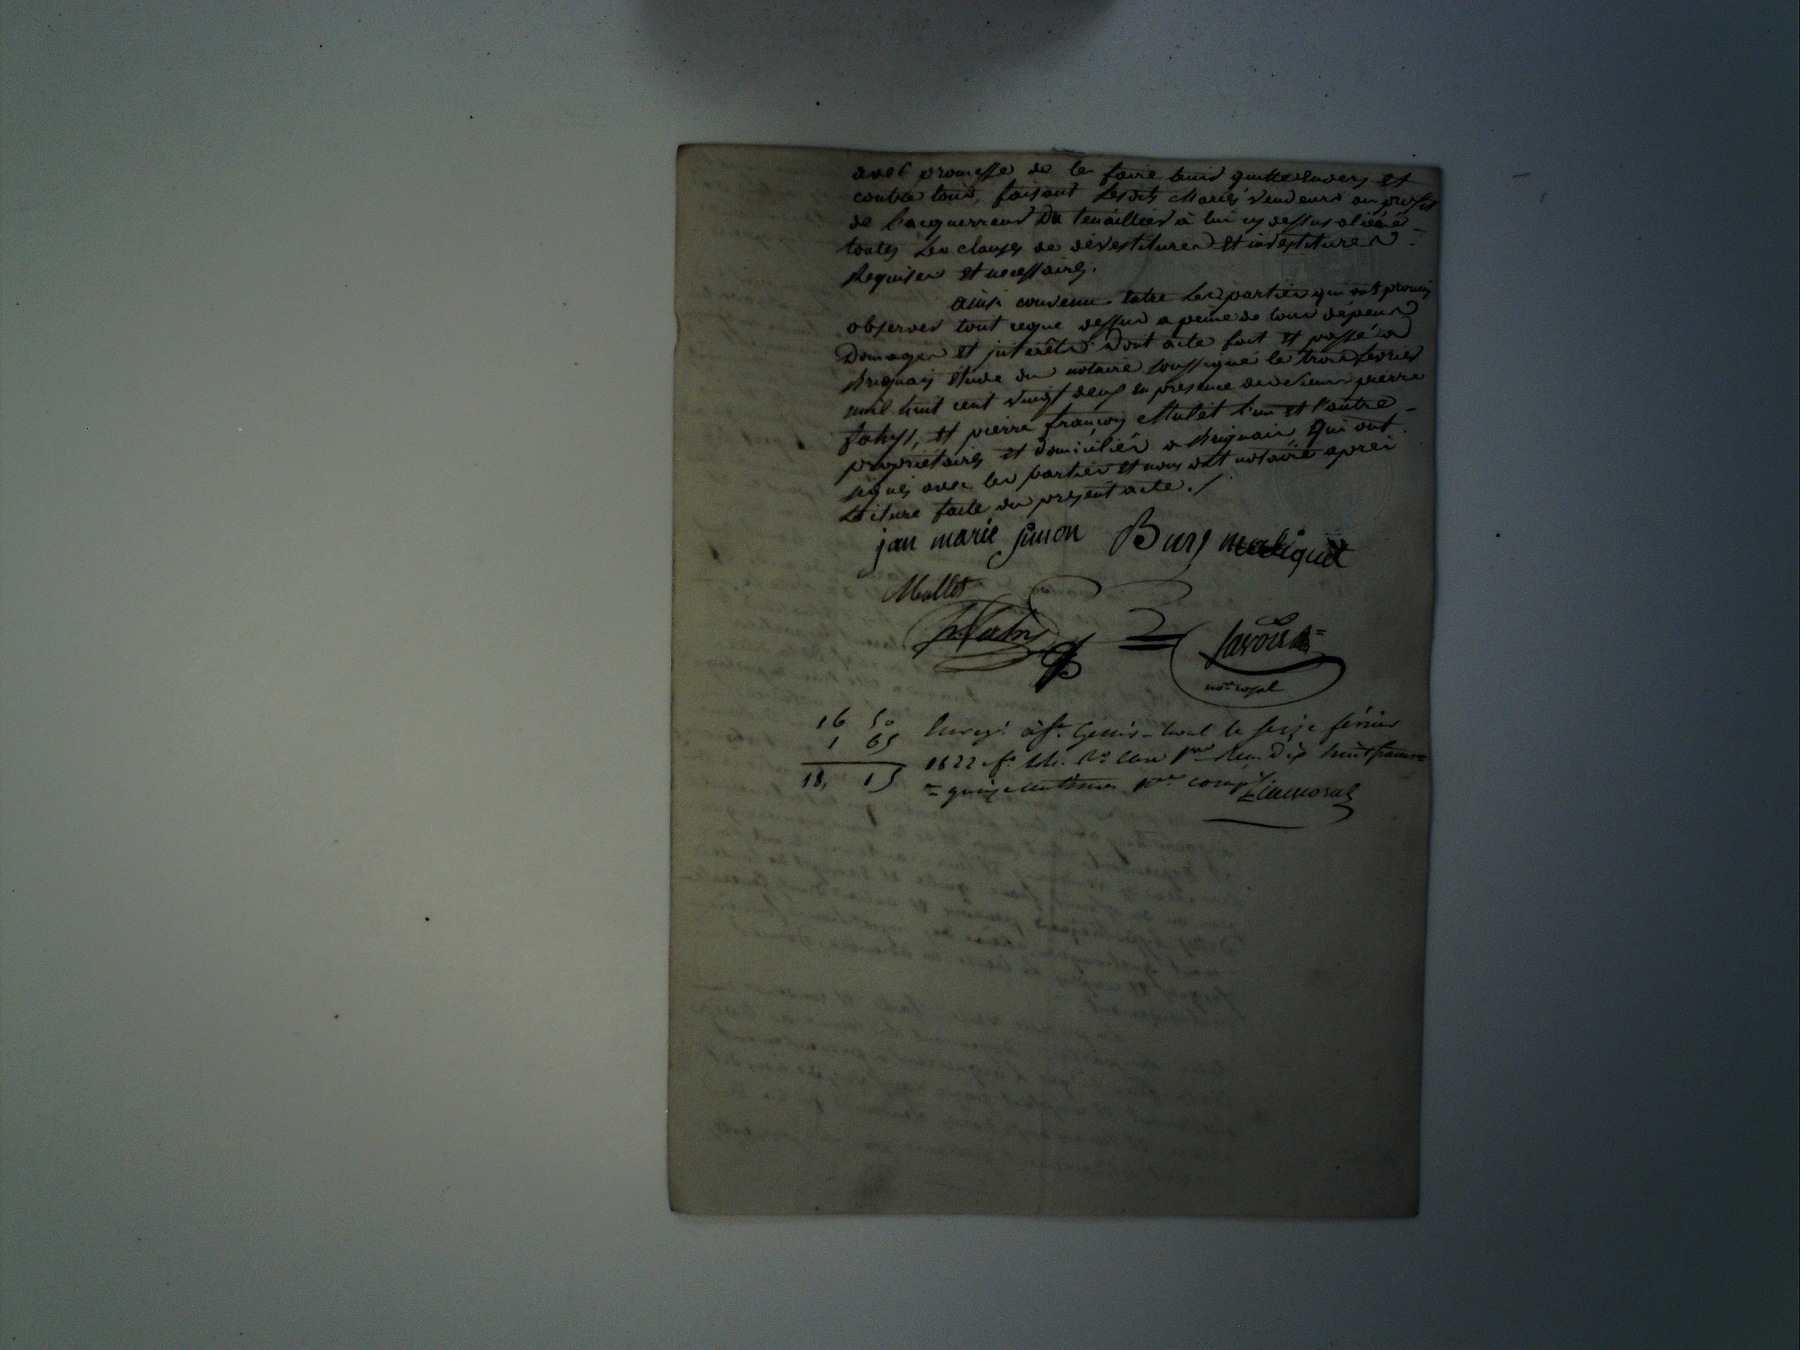 avec promesse de le faire tenir quitte envers et
contre tous, faisant lesdits Mariés vendeurs au profit
de l'acquerreur du tenaillier à lui cy dessus aliéné
toutes les clauses de devestitures et investitures
Requises et necessaires.
ainsi convenu entre les parties qui ont promis
observer tout ceque dessus a peine de tous depens
Domages et interêts dont acte fait et passé a
Brignais étude du notaire soussigné le trois fevrier
mil huit cent vingt deux en presence de sieurs pierre
et pierre françois Mulet l'un et l'autre
propriétaires et domiciliés a Brignais, Qui ont
signés avec les parties et nous dit notaire après
Lecture faite du present acte. /
jan marie simon Bury
Mollet
not. royal
16 50
1 65
18, 15
Enregé à St. Genis-Laval le seize février
1822 fo. Vo. Case Reçu Dix huit francs
= quinze centimes pour